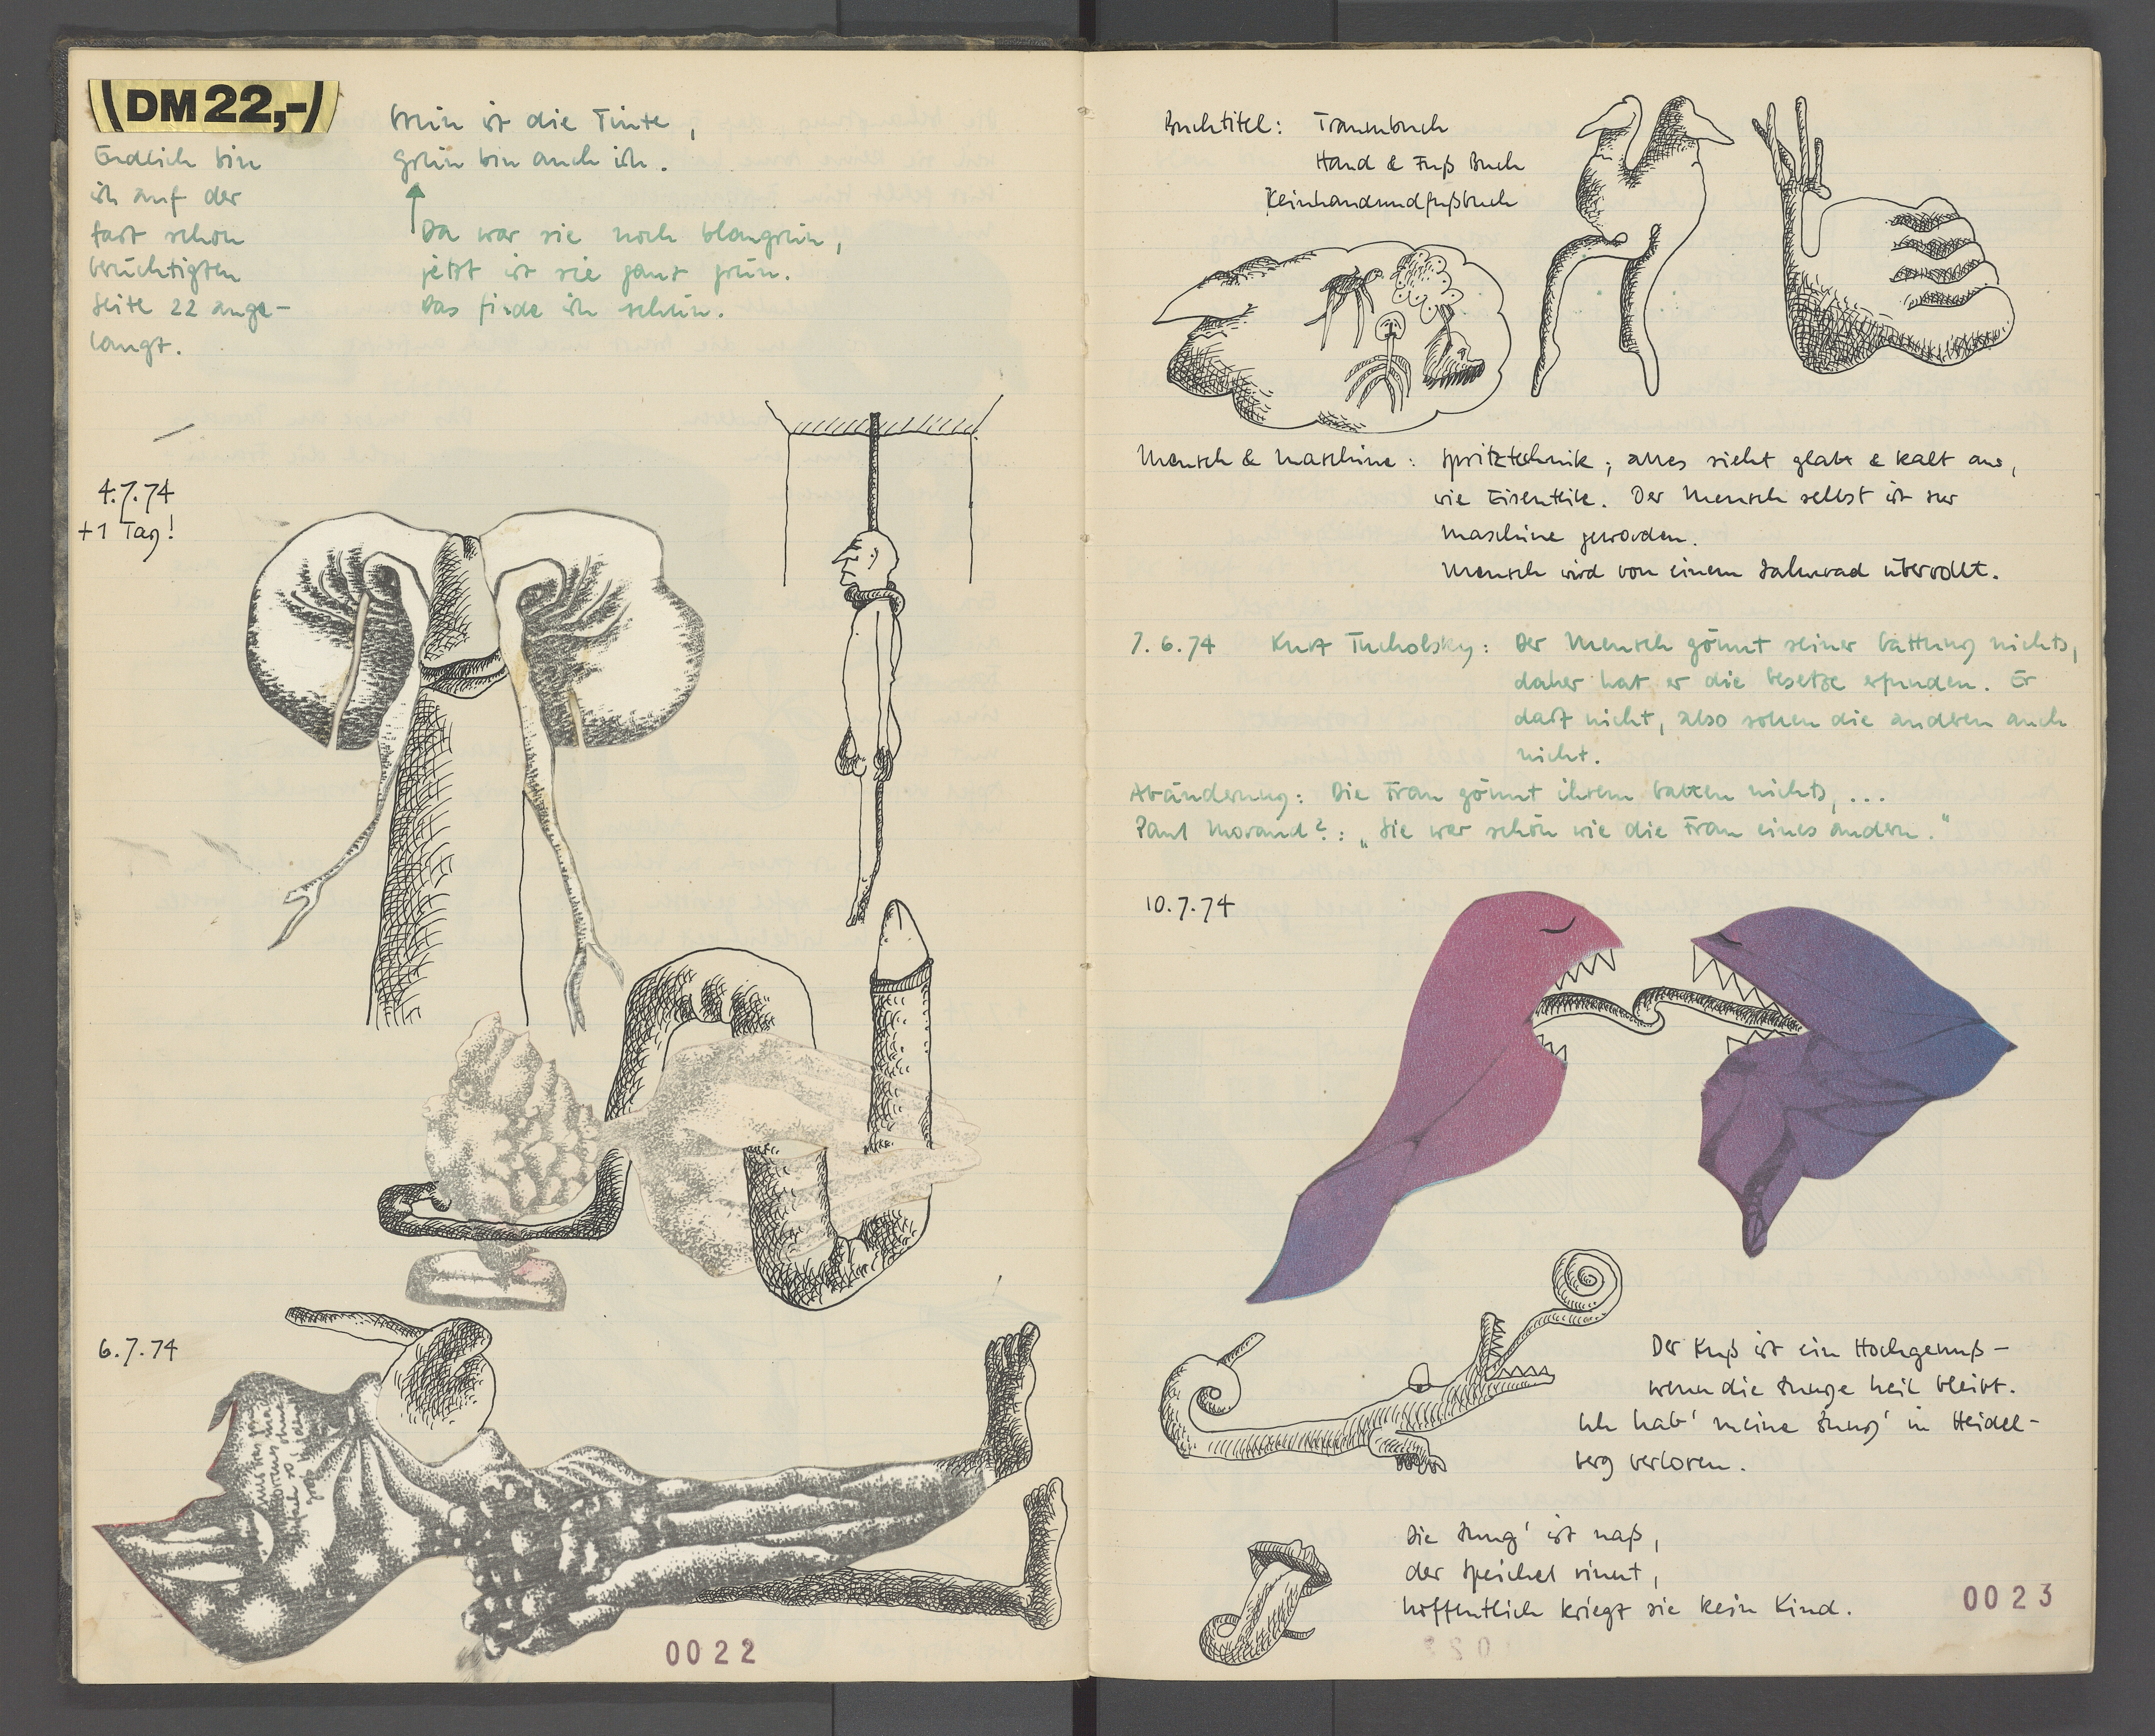 (DM 22,-)
Endlich bin
ich auf der
fast schon
berüchtigten
Seite 22 ange-
langt.
Grün ist die Tinte,
grün bin auch ich.
Da war sie noch blaugrün,
jetzt ist sie ganz grün.
Das finde ich schön.
4.7.74
+1 Tag!
6.7.74
0022
Buchtitel: Traumbuch
Hand & Fuß Buch
Keinhandundfußbuch
Mensch & Maschine: Spritztechnik; alles sieht glatt & kalt aus,
wie Eisenteile. Der Mensch selbst ist zur
Maschine geworden.
Mensch wird von einem Zahnrad überrollt.
7.6.74 Kurt Tucholsky: Der Mensch gönnt seiner Gattung nichts,
daher hat er die Gesetze erfunden. Er
darf nicht, also sollen die anderen auch
nicht.
Abänderung: Die Frau gönnt ihrem Gatten nichts, ...
Paul Morand?: „Sie war schön wie die Frau eines andern."
10.7.74
Der Kuß ist ein Hochgenuß –
wenn die Zunge heil bleibt.
Ich hab' meine Zung' in Heidel-
berg verloren.
Die Zung' ist naß,
der Speichel rinnt,
hoffentlich kriegt sie kein Kind.
0023